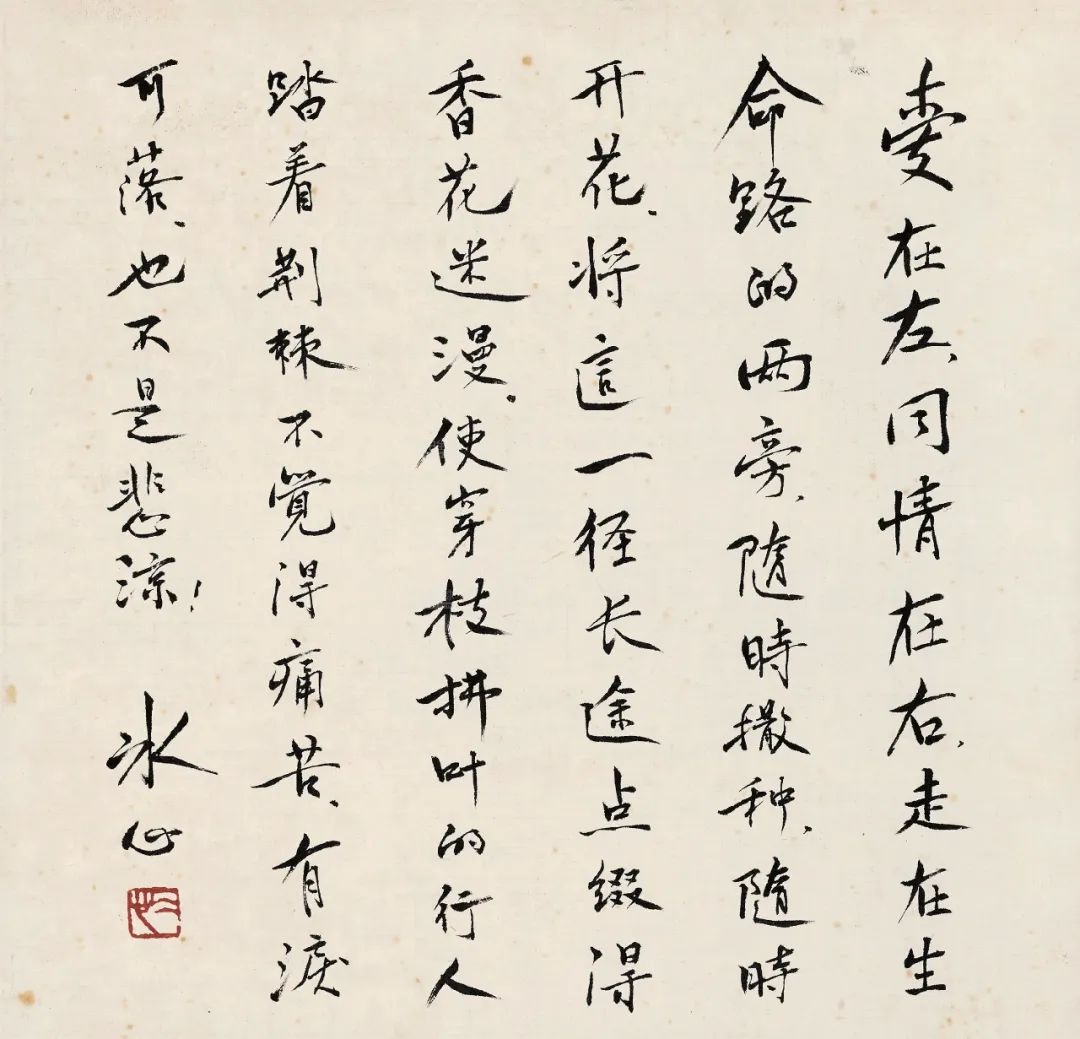 愛在左、同情在右、走在生
命路的两旁、隨時撒种、隨時
开花、将這一径长途点缀得
香花迷漫、使穿枝拂叶的行人
踏着荆棘不覺得痛苦、有淚
可落、也不是悲涼！
冰心